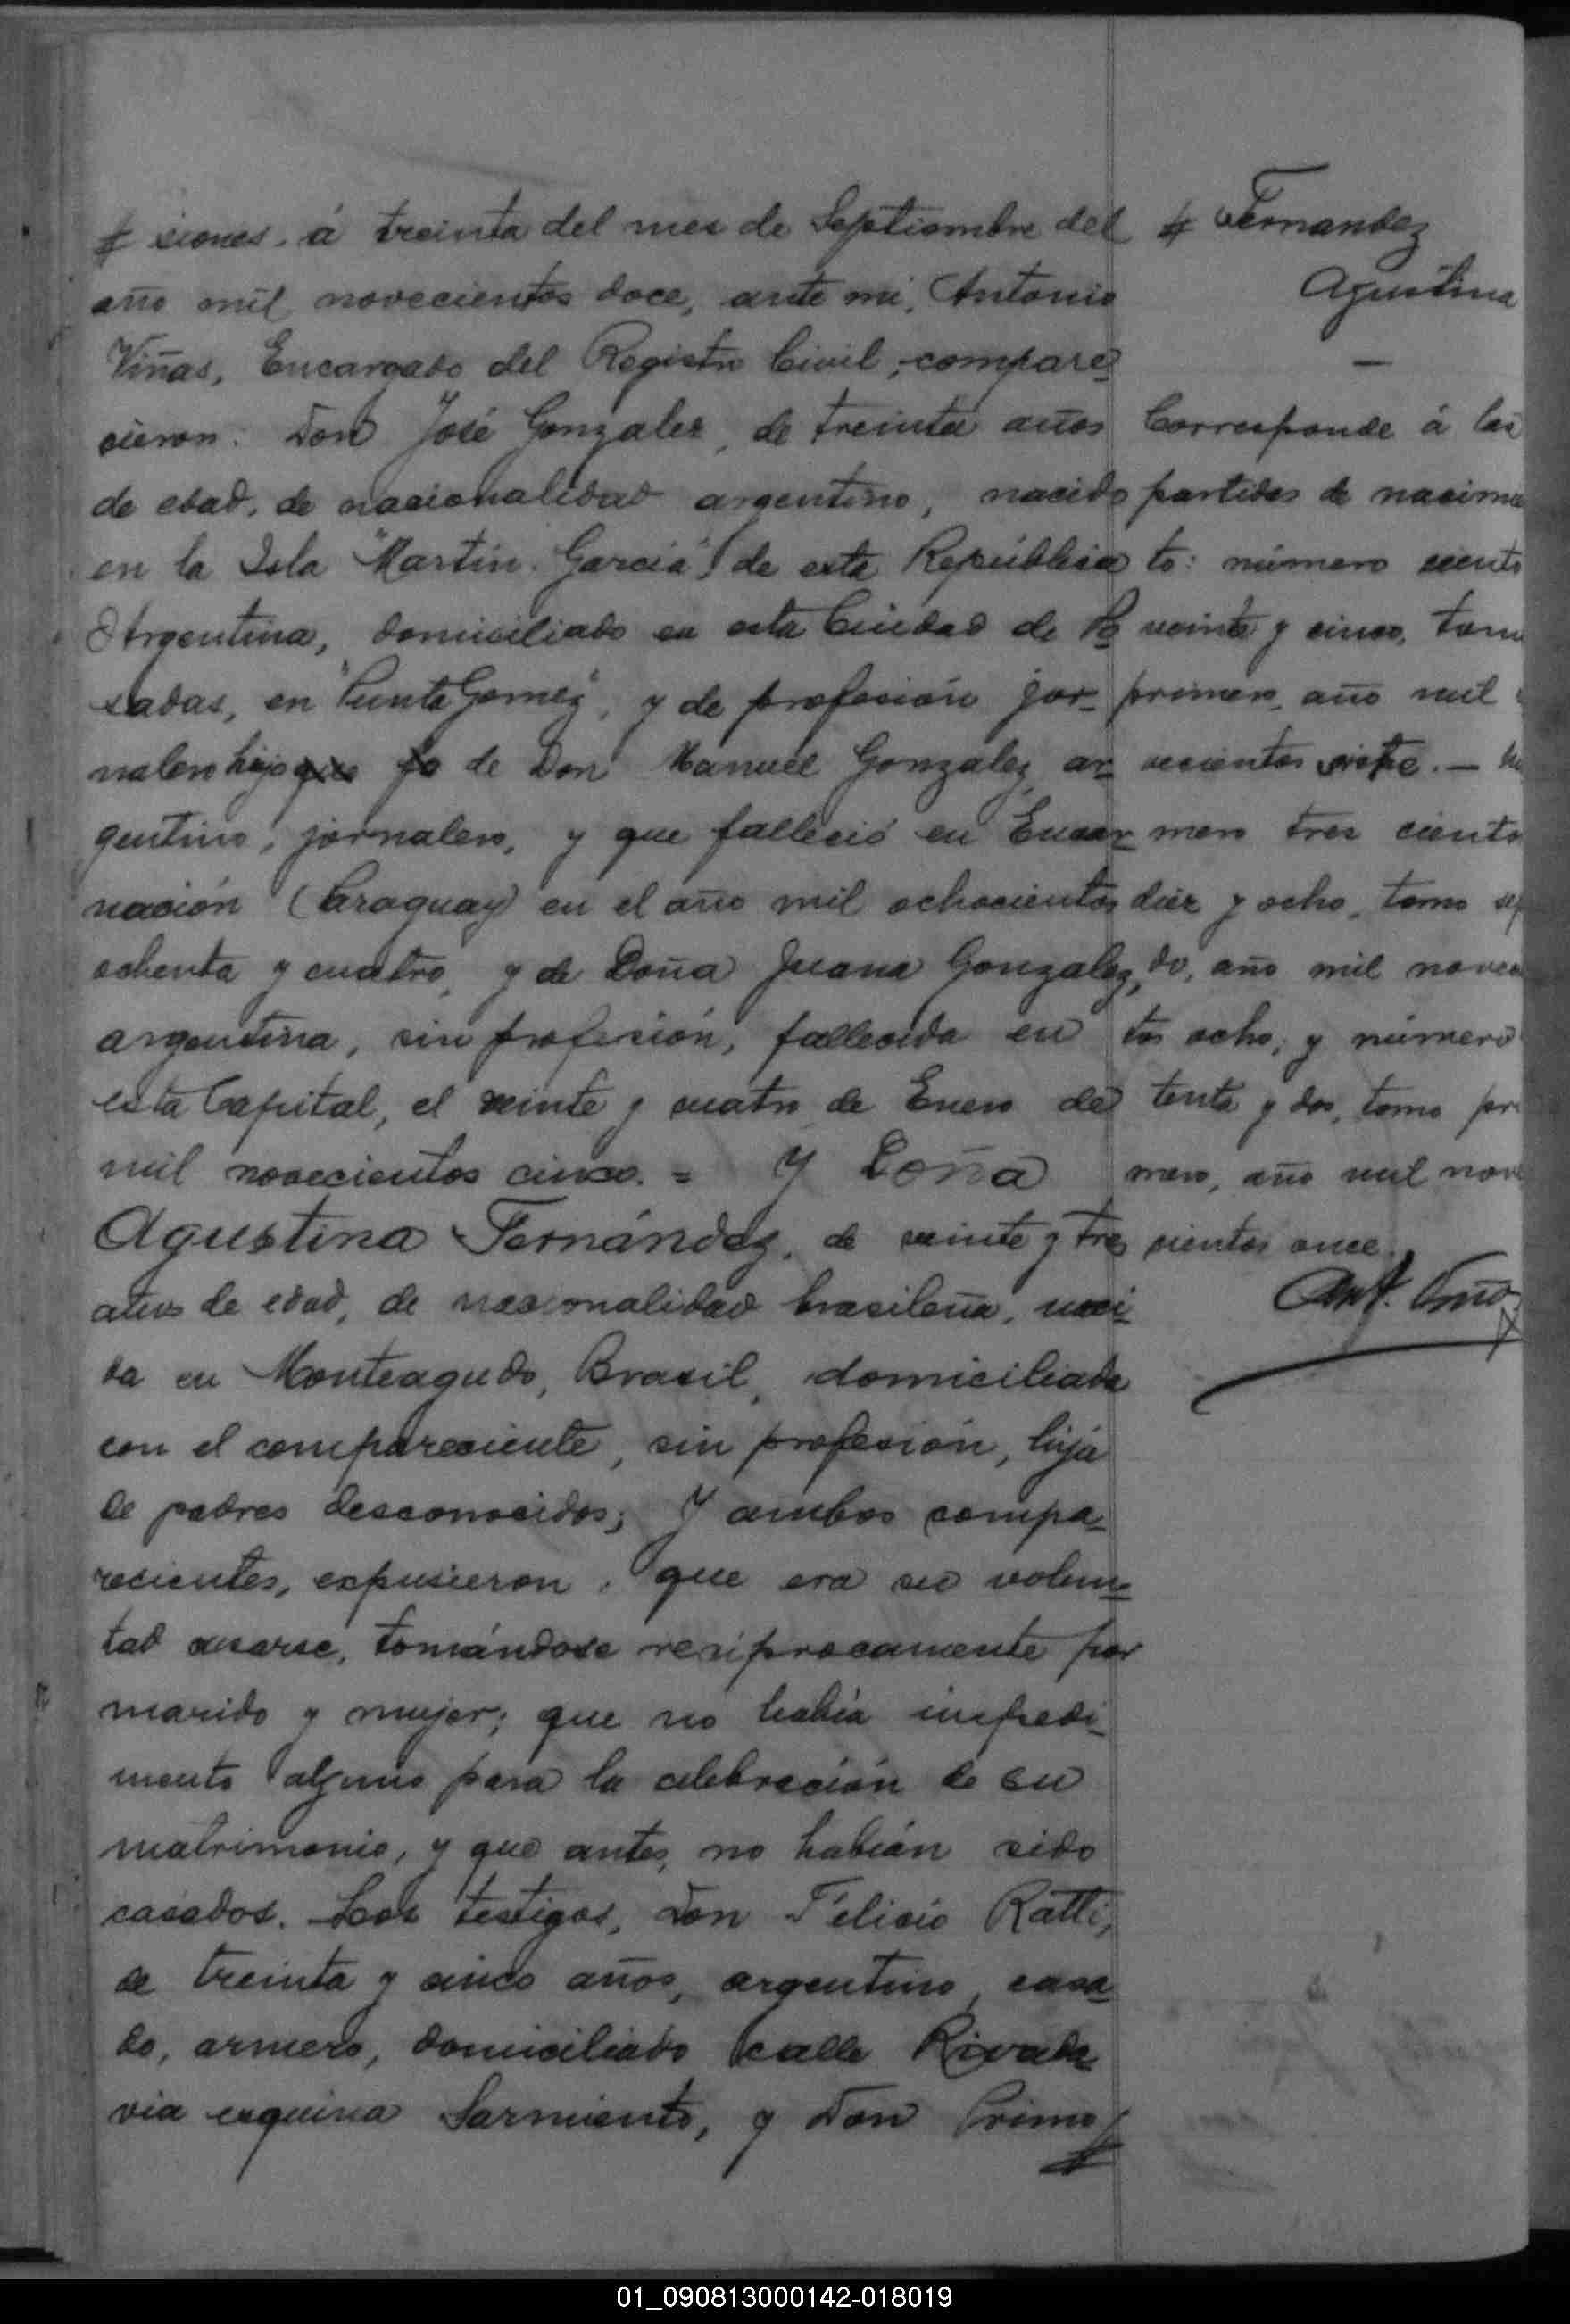 # siones, á treinta del mes de Septiembre del
año mil novecientos doce, ante mi, Antonio
Viñas, Encargado del Registro Civil, compare-
cieron: Don José Gonzalez, de treinta años
de edad, de nacionalidad argentino, nacido
en la Isla "Martin Garcia", de esta República
Argentina, domiciliado en esta Ciudad de Po-
sadas, en "Punta Gomez", y de profesión jor-
nalero hijo de Don Manuel Gonzalez, ar-
gentino, jornalero, y que falleció en Encar-
nación (Paraguay) en el año mil ochocientos
ochenta y cuatro, y de Doña Juana Gonzalez,
argentina, sin profesión, fallecida en
esta Capital, el veinte y cuatro de Enero de
mil novecientos cinco. = Y Doña
Agustina Fernández, de veinte y tres
años de edad, de nacionalidad brasileña, naci-
da en Monteagudo, Brasil, domiciliada
con el compareciente, sin profesión, hija
de padres desconocidos; Y ambos compa-
recientes, expusieron: que era su volun-
tad casarse, tomándose reciprocamente por
marido y mujer; que no había impedi-
mento alguno para la celebración de su
matrimonio, y que antes, no habián sido
casados. Los testigos, Don Felicio Ratti,
de treinta y cinco años, argentino, casa-
do, armero, domiciliado calle Rivada-
via esquina Sarmiento, y Don Primo #
# Fernandez
Agustina
—
Corresponde á las
partidas de nacimien
to: número ciento
veinte y cinco, tomo
primero, año mil
vecientos siete. —
mero tres ciento
diez y ocho, tomo
do, año mil novecien
tos ocho; y número
tenta y dos, tomo pri
mero, año mil nove
cientos once.
Ant. Viñas
01_090813000142-018019